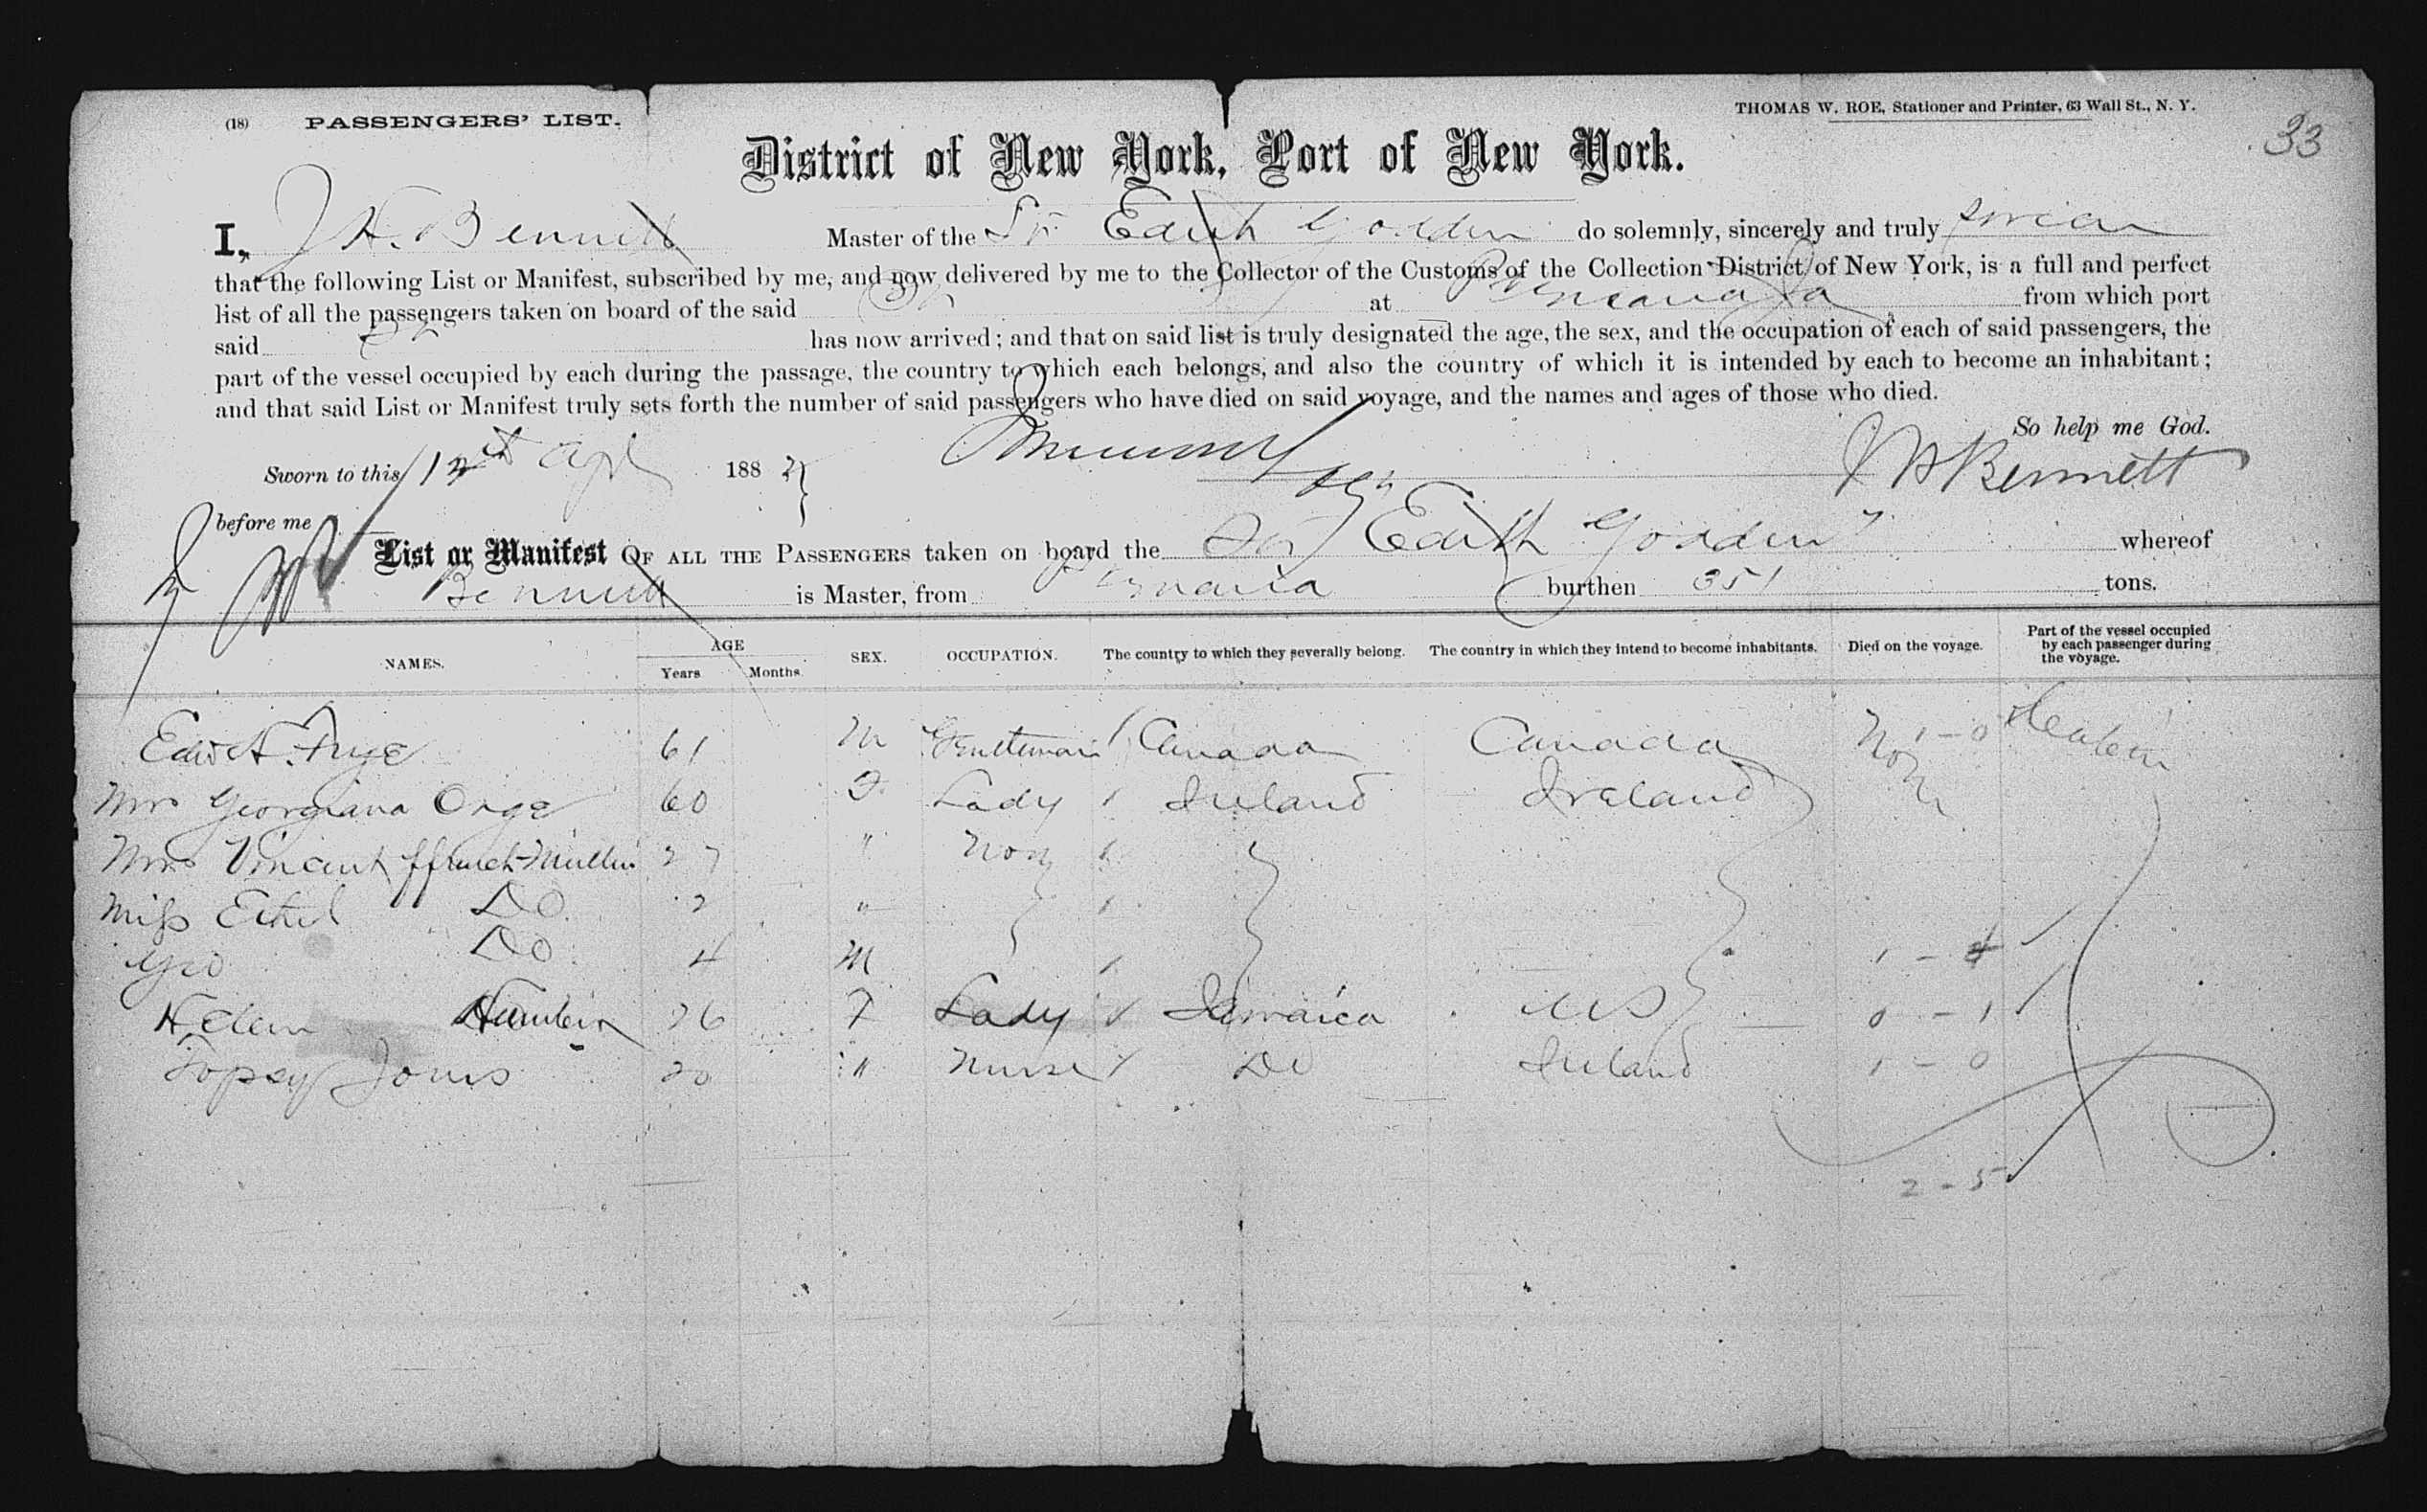 (18) PASSENGERS' LIST.
THOMAS W. ROE, Stationer and Printer, 63 Wall St., N. Y.
33
District of New York, Port of New York.
I, J H. Bennett Master of the Str Edith Godden do solemnly, sincerely and truly swear
that the following List or Manifest, subscribed by me, and now delivered by me to the Collector of the Customs of the Collection District of New York, is a full and perfect
list of all the passengers taken on board of the said Str at from which port
said Str has now arrived; and that on said list is truly designated the age, the sex, and the occupation of each of said passengers, the
part of the vessel occupied by each during the passage, the country to which each belongs, and also the country of which it is intended by each to become an inhabitant;
and that said List or Manifest truly sets forth the number of said passengers who have died on said voyage, and the names and ages of those who died.
So help me God.
Sworn to this 12th Apl 1882
J H Bennett
before me
List or Manifest OF ALL THE PASSENGERS taken on board the Str Edith Godden whereof
Bennett is Master, from burthen 351 tons.
NAMES. AGE Years Months. SEX. OCCUPATION. The country to which they severally belong. The country in which they intend to become inhabitants. Died on the voyage. Part of the vessel occupied by each passenger during the voyage.
Edw A. Frye 61 M Gentleman 1 Canada Canada None 1-0
Mrs Georgiana Orge 60 F Lady 1 Ireland Ireland
Mrs Vincent ffrench-Mullin 27 " None 1
Miss Ethel Do 2 " 1
Geo Do 4 M 1 1 - 4
Helen Hamlin 26 F Lady 1 Jamaica US 0 - 1
Topsey Jones 20 " Nurse 1 Do Ireland 1 - 0
2 - 5